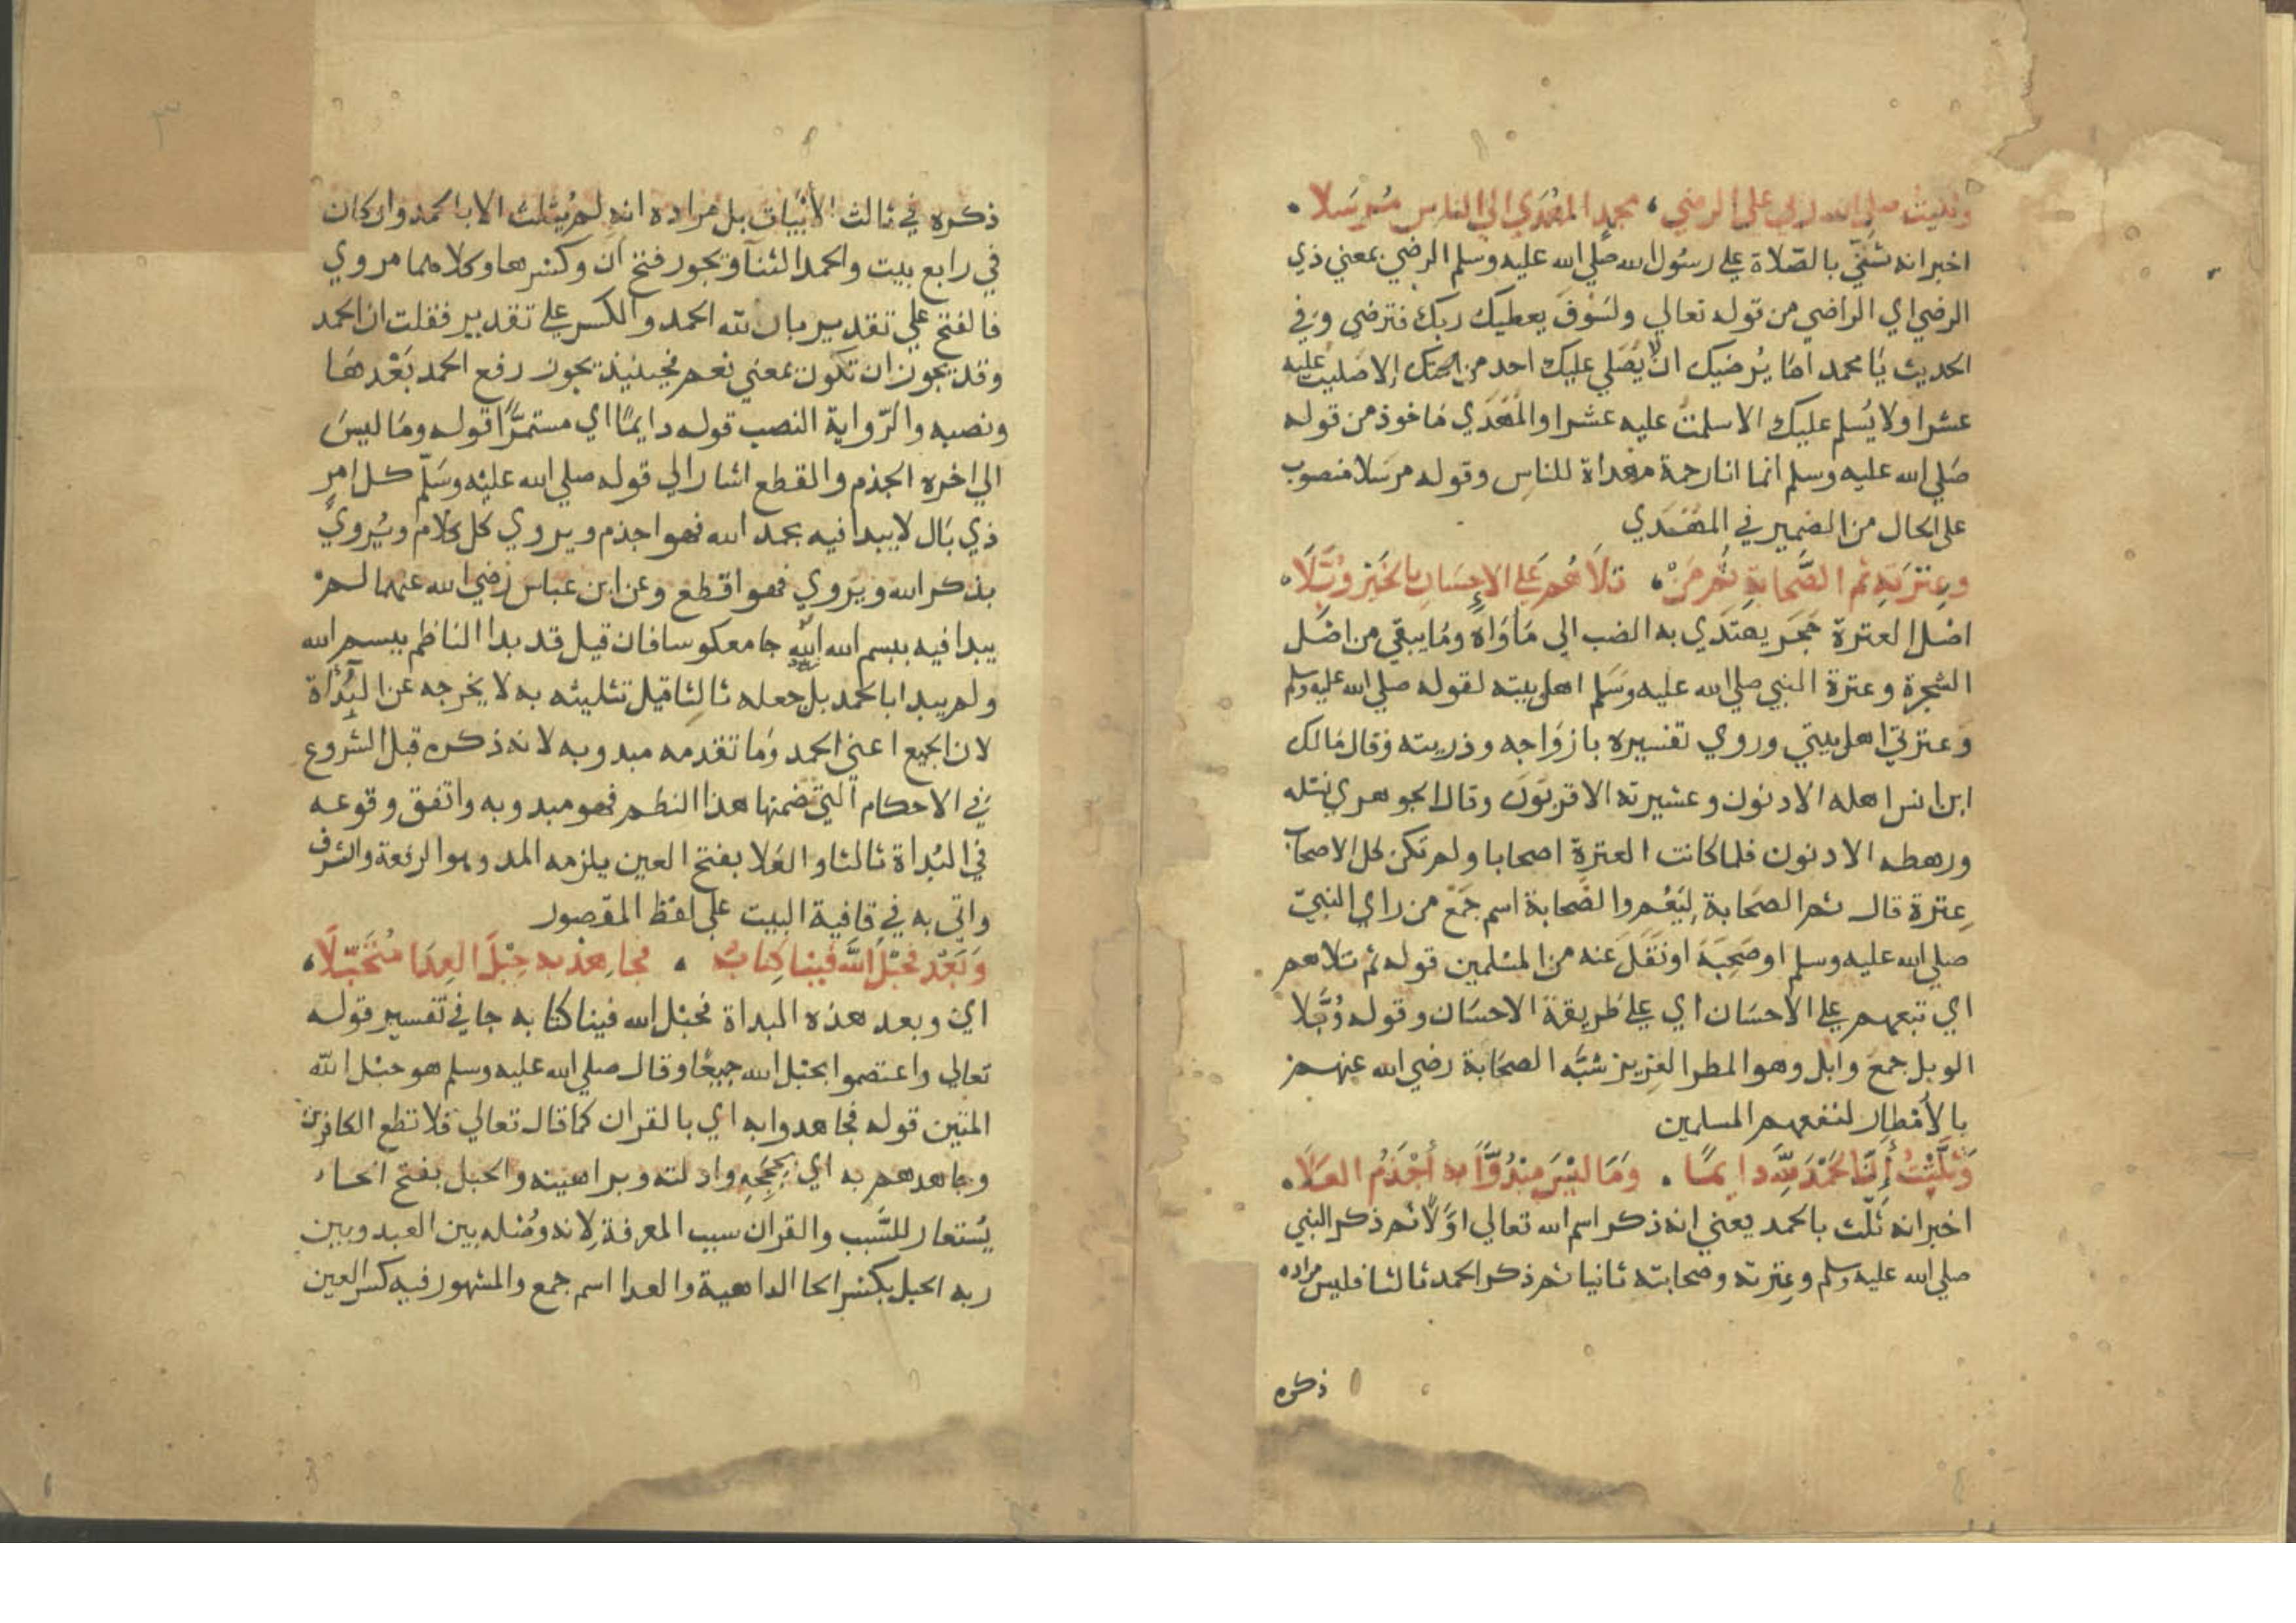 وثنيت صلى الله ربي على الرضي، محمد المهدي الى الناس مرسلا
اخبر انه ثنيّ بالصّلاة علي رسُول الله صلي الله عليه وسلم الرضي بمعني ذي
الرضي اي الراضي من قوله تعالي ولسَوْفَ يعطيك ربك فترضي وفي
الحديث يا محمد امَا يُرضيك ان لا يُصَلي عليك احد من امتك إلا صَليت عليه
عشرا ولا يُسلم عليك الا سلمتُ عليه عشرا والمُهْدَي مَاخوذ من قوله
صَلي الله عليه وسلم انما انا رحمة مهداة للناس وقوله مرسَلا منصوب
على الحال من الضمير في المهْدي
وعِتْرَتِهِ ثم الصَّحابةِ ثم مَنْ، تلاَهُم عَلي الإِحسَانِ بالخَيْرِ وُبَّلَا
اصْل العترة حَجَر يهتَدي به الضب الي مَاوَاه ومَا يبقي من اصْل
الشجرة وعترة النبي صلي الله عليه وسَلم اهل بيته لقوله صلي الله عليه وسلم
وَعترتي اهل بيتي وروي تفسيره بازوَاجه وذريته وقال مَالك
ابن انس اهله الادنون وعشيرته الاقربَونَ وقال الجوهري نَسْله
ورهطه الادنون فلما كانت العترة اصحابا ولم تكن كل الاصحاب
عِترة قال ثم الصَحَابة لِيَعُم والصَحابة اسم جَمْع من راي النبيّ
صلي الله عليه وسلم او صَحِبَهَ او نَقَلَ عنه من المسْلمين قوله ثم تلاهم
اي تبعهم علي الاحسَان اي علي طريقة الاحسَان وقوله وُبَّلا
الوبل جمع وَابل وهو المطر الغزير شبَّه الصحَابة رضي الله عنهم
بالأمْطار لنفعهم المسلمين
وَثلَّثْتُ أَنَّ الحَمْدَ لِلَّهِ دايمًا . وَمَا ليْسَ مبْدُوًّا به أجْذَمُ العَلَا
اخبر انه ثَلّث بالحمد يعني انه ذكر اسم الله تعالي اوّلا ثم ذكر النبي
صلي الله عليه وسلم وعِترته وصحابته ثانيا ثم ذكر الحمد ثالثا فليس مراده
ذكره
٣
ذكره في ثالث الأبْيات بل مراده انه لم يُثلث الا بالحمد وان كان
في رابع بيت والحمد الثنآ ويجوز فتح انّ وكسْرها وكلاهما مروي
فالفتح علي تقدير بان لله الحمد والكسر علي تقدير فقلت ان الحمد
وقد يجوز ان تكون بمعني نعم فحينيذ يجوز رفع الحمد بَعْدهَا
ونصبه والرّواية النصب قوله دايمًا اي مستمرًّا قوله ومَا ليسَ
الي اخره الجذم والقطع اشار الي قوله صلي الله عليْه وسَلّم كل امرٍ
ذي بَال لا يبدا فيه بحمد الله فهو اجذم ويروي كل كلام ويُروي
بذكر الله ويَروي فهو اقطع وعن ابن عباس رضي الله عنهما لم
يبدا فيه ببسم الله جا معكوسا فان قيل قد بدا الناظم ببسم الله
ولم يبدا بالحمد بل جعله ثالِثا قيل تثليثه به لا يخرجه عن البُدَاة
لان الجميع اعني الحمد ومَا تقدمه مبدو به لانه ذكره قبل الشروع
في الاحكام التي تضمنها هذا النظم فهو مبدو به واتفق وقوعه
في البُداة ثالثا والعَلا بفتح العين يلزمه المد وهو الرفعة والشرف
واتي به في قافية البيت علي لفظ المقصور
وَبَعْد فحَبْلُ اللَّه فينا كِتابُهُ . فجاهِدْ به حِبْلَ العِدَا مُتَحَبِّلَا
اي وبعد هذه المبداة فحبْل الله فينا كتابه جا في تفسير قوله
تعالي واعتصموا بحبْل الله جميعًا وقال صلي الله عليه وسلم هو حبْل الله
المتين قوله فجاهدوا به اي بالقران كما قال تعالي فلا تطع الكافرين
وجاهدهم به اي بِحُجَجِهِ وادلته وبراهينه والحبل بفتح الحاء
يُسْتعار للسَّبب والقران سبب المعرفة لانه وُصْله بين العبد وبين
ربه الحبل بكسْر الحا الداهية والعدا اسم جمع والمشهور فيه كسر العين